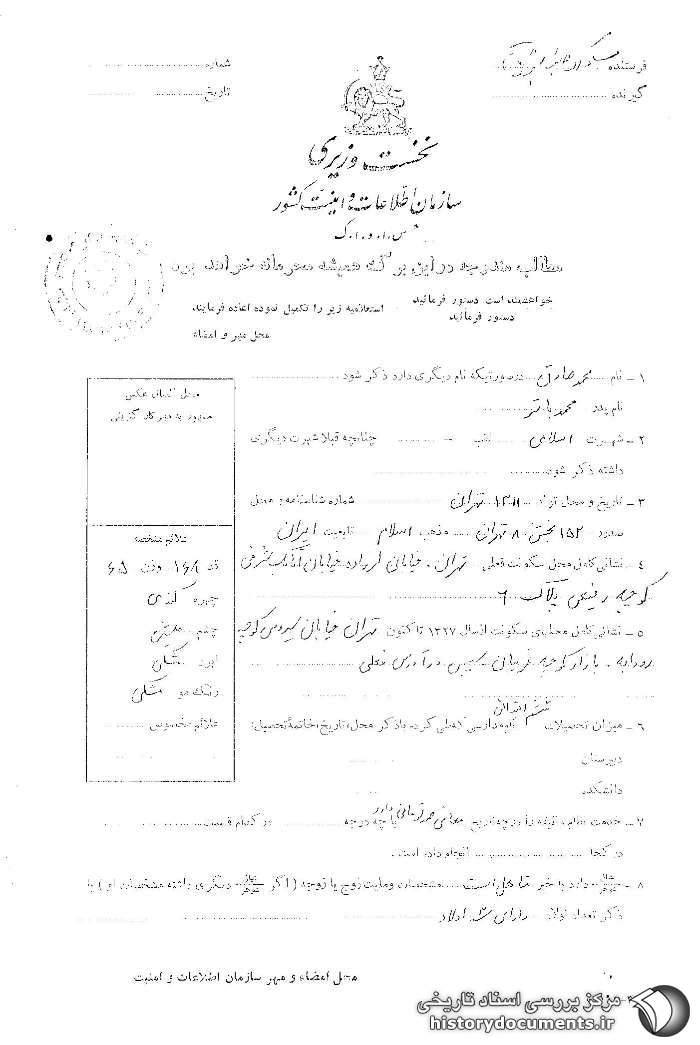 فرستنده
شماره
گیرنده
تاریخ
نخست وزیری
سازمان اطلاعات و امنیت کشور
س.ا.و.ا.ک
مطالب مندرجه در این برگه همیشه محرمانه خواهد بود
خواهشمند است دستور فرمائید
دستور فرمائید
استعلامیه زیر را تکمیل نموده اعاده فرمایند.
محل مهر و امضاء
۱ - نام محمد صادق در صورتیکه نام دیگری دارد ذکر شود
نام پدر محمد باقر
۲ - شهرت اسلامی لقب - چنانچه قبلا شهرت دیگری
داشته ذکر شود
۳ - تاریخ و محل تولد تهران شماره شناسنامه و محل
صدور ۱۵۲ بخش ۸ تهران مذهب اسلام تابعیت ایران
۴ - نشانی کامل محل سکونت فعلی تهران - خیابان خیابان
کوچه پلاک ۶
۵ - نشانی کامل محل‌های سکونت از سال ۱۳۲۷ تا کنون تهران خیابان سیروس کوچه
بازار کوچه سپس در آدرس فعلی
۶ - میزان تحصیلات ششم ابتدائی نام مدارسی که طی کرده با ذکر محل، تاریخ، خاتمه تحصیل:
دبیرستان
دانشکده
۷ - خدمت نظام وظیفه را در چه تاریخ معافی دارد با چه درجه در کدام قسمت
در کجا انجام داده است.
۸ - دارد یا خیر متاهل است مشخصات و ملیت زوج یا زوجه (اگر دیگری داشته مشخصات او) با
ذکر تعداد اولاد دارای اولاد
محل الصاق عکس
علائم مشخصه
قد ۱۶۸ وزن ۶۵
چهره گندمی
چشم میشی
ابرو مشکی
رنگ مو مشکی
علائم مخصوص
محل امضاء و مهر سازمان اطلاعات و امنیت
مرکز بررسی اسناد تاریخی
historydocuments.ir